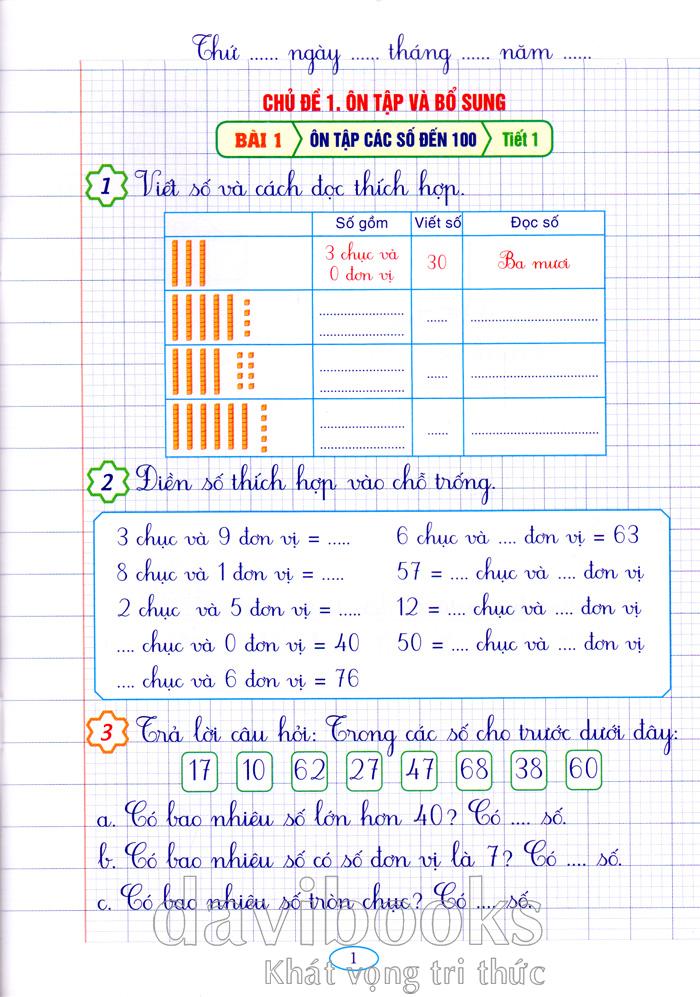 Thứ ...... ngày ...... tháng ...... năm ......
CHỦ ĐỀ 1. ÔN TẬP VÀ BỔ SUNG
BÀI 1 ÔN TẬP CÁC SỐ ĐẾN 100 Tiết 1
1 Viết số và cách đọc thích hợp.
Số gồm Viết số Đọc số
3 chục và 0 đơn vị 30 Ba mươi
2 Điền số thích hợp vào chỗ trống.
3 chục và 9 đơn vị = ..... 6 chục và .... đơn vị = 63
8 chục và 1 đơn vị = ..... 57 = .... chục và .... đơn vị
2 chục và 5 đơn vị = ..... 12 = .... chục và .... đơn vị
.... chục và 0 đơn vị = 40 50 = .... chục và .... đơn vị
.... chục và 6 đơn vị = 76
3 Trả lời câu hỏi: Trong các số cho trước dưới đây:
17 10 62 27 47 68 38 60
a. Có bao nhiêu số lớn hơn 40? Có .... số.
b. Có bao nhiêu số có số đơn vị là 7? Có .... số.
c. Có bao nhiêu số tròn chục? Có .... số.
davibooks
1
Khát vọng tri thức